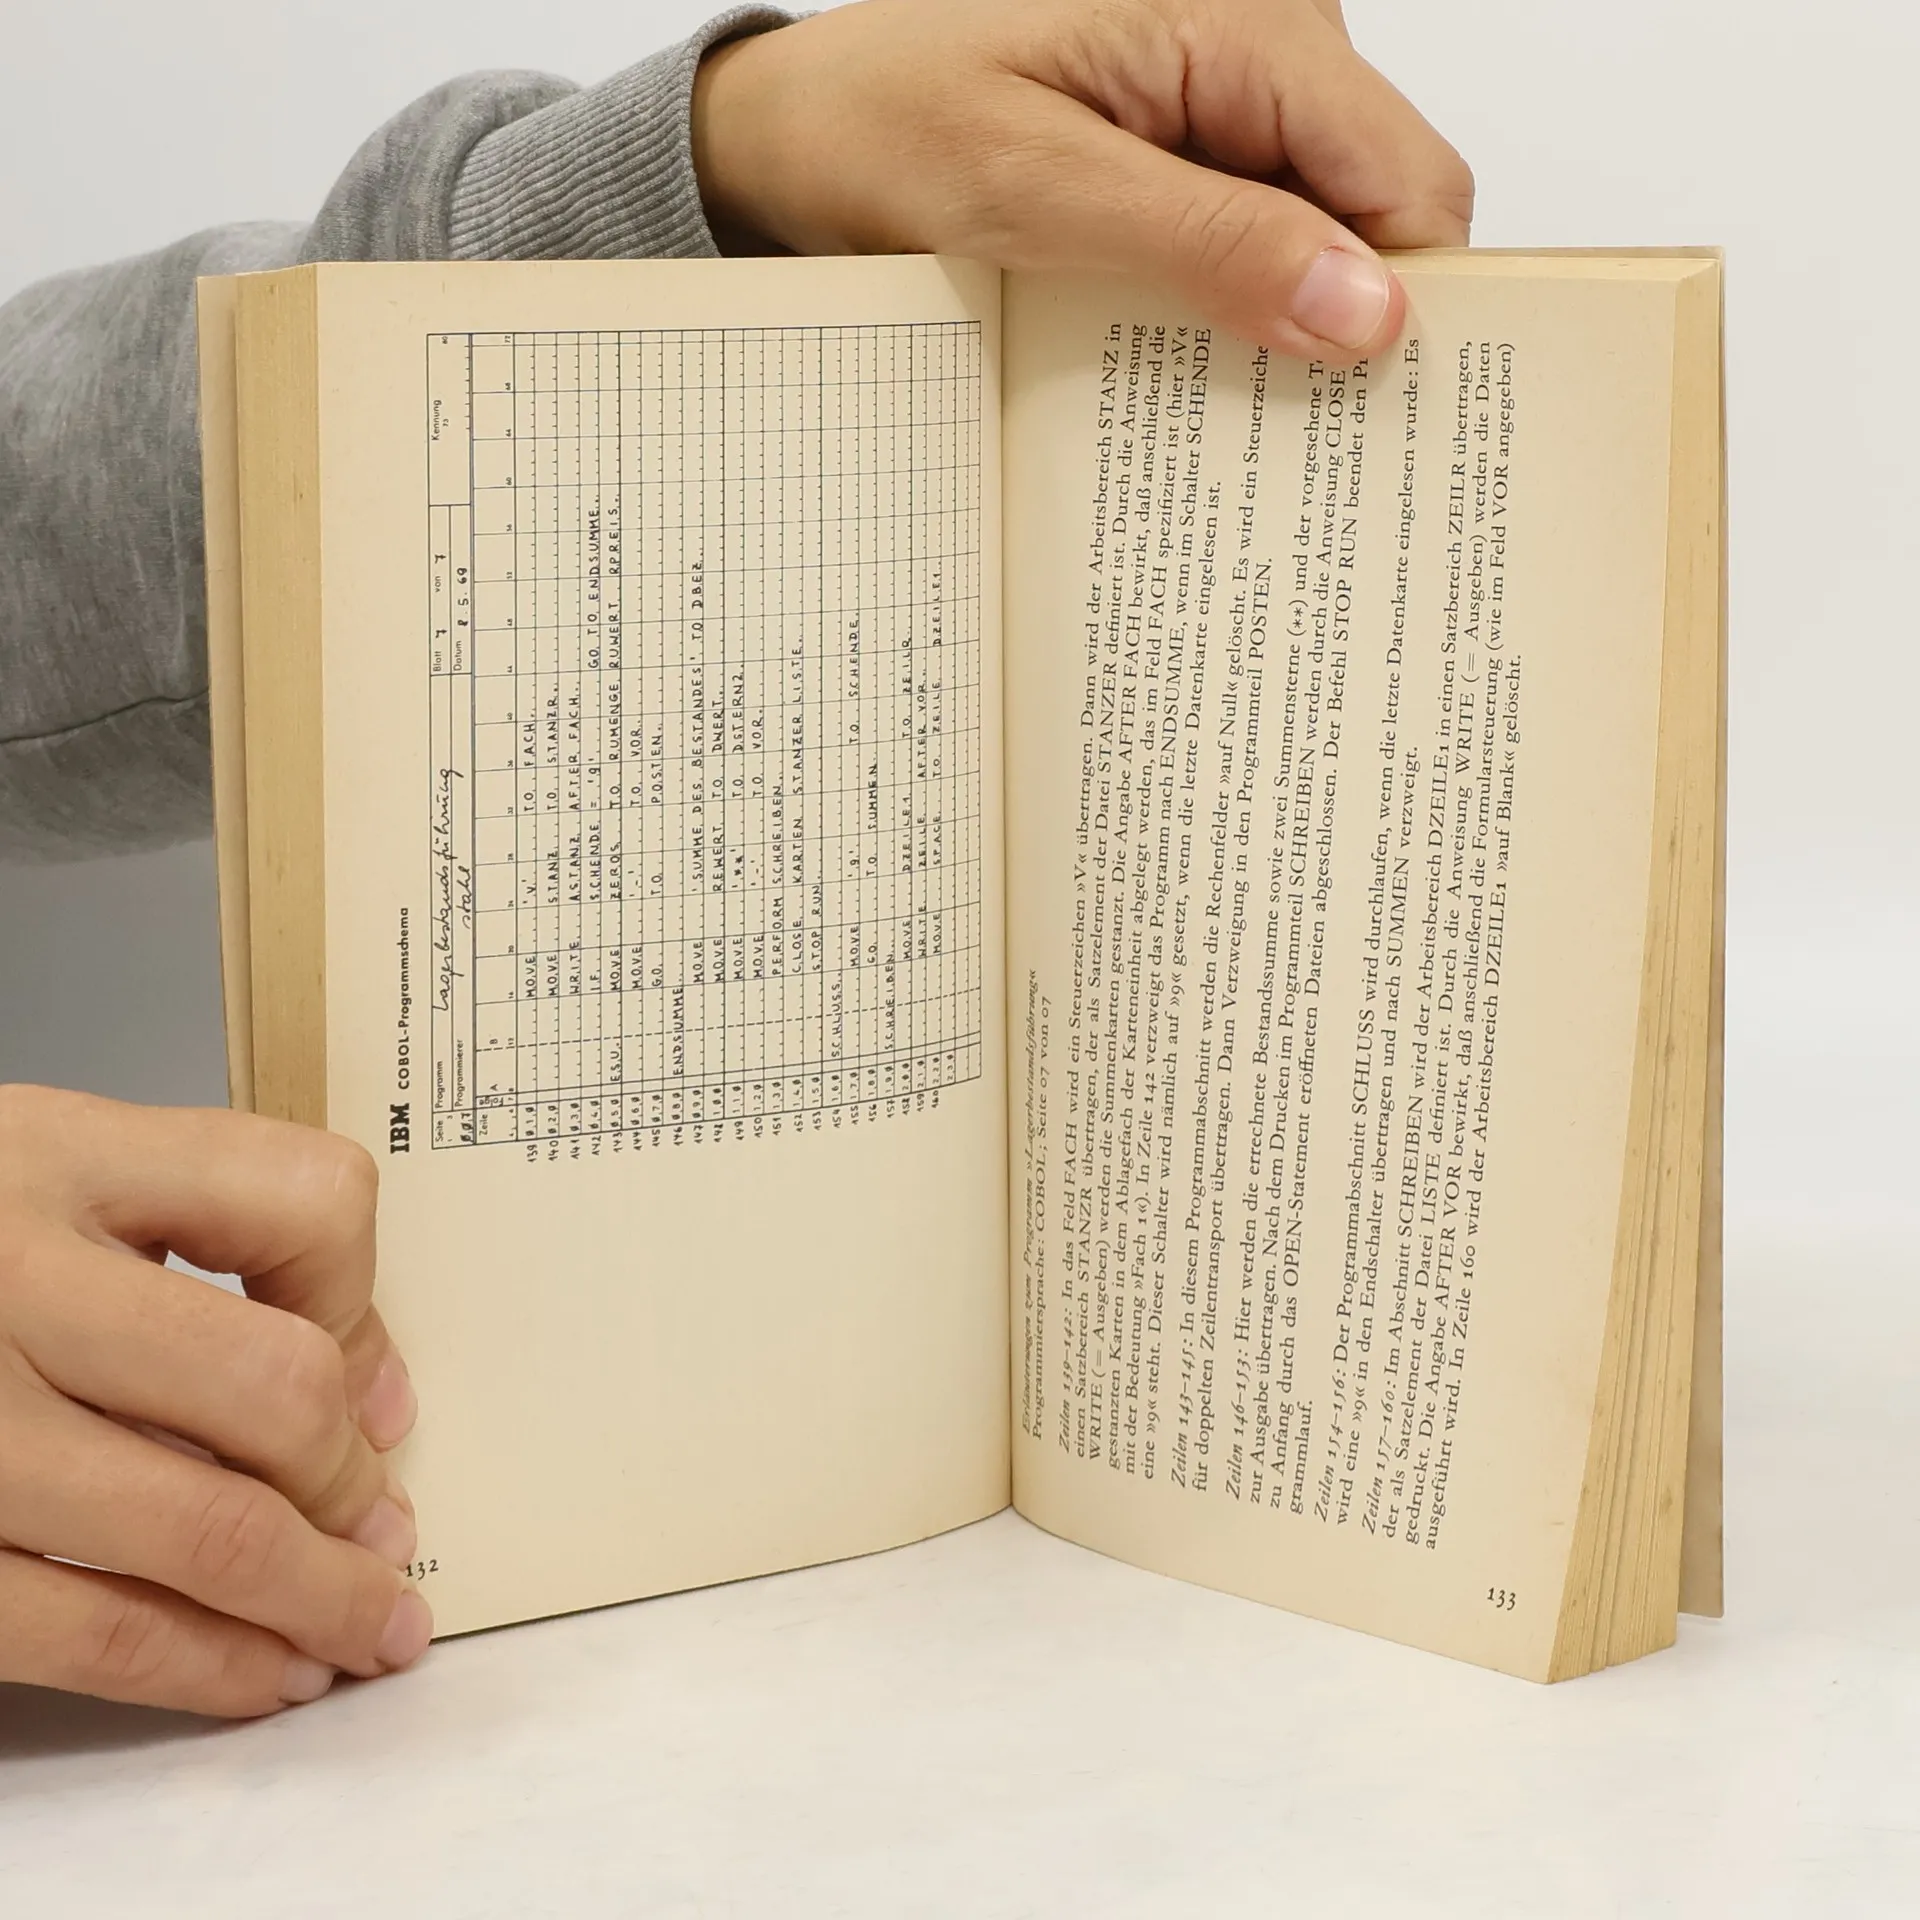 IBM COBOL-Programmschema
Seite Programm Lagerbestandsführung Blatt 7 von 7 Kennung
007 Programmierer Stahl Datum 8.5.69
Zeile A B
139 010 MOVE 'V' TO FACH.
140 020 MOVE STANZ TO STANZR.
141 030 WRITE ASTANZ AFTER FACH.
142 040 IF SCHENDE = '9' GO TO ENDSUMME.
143 050 ESU. MOVE ZEROS TO RUMENGE RUWERT RPREIS.
144 060 MOVE '-' TO VOR.
145 070 GO TO POSTEN.
146 080 ENDSUMME.
147 090 MOVE 'SUMME DES BESTANDES' TO DBEZ.
148 100 MOVE REWERT TO DWERT.
149 110 MOVE '**' TO DSTERN2.
150 120 MOVE '-' TO VOR.
151 130 PERFORM SCHREIBEN.
152 140 CLOSE KARTEN STANZER LISTE.
153 150 STOP RUN.
154 160 SCHLUSS.
155 170 MOVE '9' TO SCHENDE.
156 180 GO TO SUMMEN.
157 190 SCHREIBEN.
158 200 MOVE DZEILE1 TO ZEILR.
159 210 WRITE ZEILE AFTER VOR.
160 220 MOVE SPACE TO ZEILE DZEILE1.
230
132
Erläuterungen zum Programm »Lagerbestandsführung«
Programmiersprache: COBOL; Seite 07 von 07
Zeilen 139–142: In das Feld FACH wird ein Steuerzeichen »V« übertragen. Dann wird der Arbeitsbereich STANZ in
einen Satzbereich STANZR übertragen, der als Satzelement der Datei STANZER definiert ist. Durch die Anweisung
WRITE (= Ausgeben) werden die Summenkarten gestanzt. Die Angabe AFTER FACH bewirkt, daß anschließend die
gestanzten Karten in dem Ablagefach der Karteneinheit abgelegt werden, das im Feld FACH spezifiziert ist (hier »V«
mit der Bedeutung »Fach 1«). In Zeile 142 verzweigt das Programm nach ENDSUMME, wenn im Schalter SCHENDE
eine »9« steht. Dieser Schalter wird nämlich auf »9« gesetzt, wenn die letzte Datenkarte eingelesen ist.
Zeilen 143–145: In diesem Programmabschnitt werden die Rechenfelder »auf Null« gelöscht. Es wird ein Steuerzeiche
für doppelten Zeilentransport übertragen. Dann Verzweigung in den Programmteil POSTEN.
Zeilen 146–153: Hier werden die errechnete Bestandssumme sowie zwei Summensterne (**) und der vorgesehene
zur Ausgabe übertragen. Nach dem Drucken im Programmteil SCHREIBEN werden durch die Anweisung CLOSE
zu Anfang durch das OPEN-Statement eröffneten Dateien abgeschlossen. Der Befehl STOP RUN beendet den
grammlauf.
Zeilen 154–156: Der Programmabschnitt SCHLUSS wird durchlaufen, wenn die letzte Datenkarte eingelesen wurde: Es
wird eine »9« in den Endschalter übertragen und nach SUMMEN verzweigt.
Zeilen 157–160: Im Abschnitt SCHREIBEN wird der Arbeitsbereich DZEILE1 in einen Satzbereich ZEILR übertragen,
der als Satzelement der Datei LISTE definiert ist. Durch die Anweisung WRITE (= Ausgeben) werden die Daten
gedruckt. Die Angabe AFTER VOR bewirkt, daß anschließend die Formularsteuerung (wie im Feld VOR angegeben)
ausgeführt wird. In Zeile 160 wird der Arbeitsbereich DZEILE1 »auf Blank« gelöscht.
133